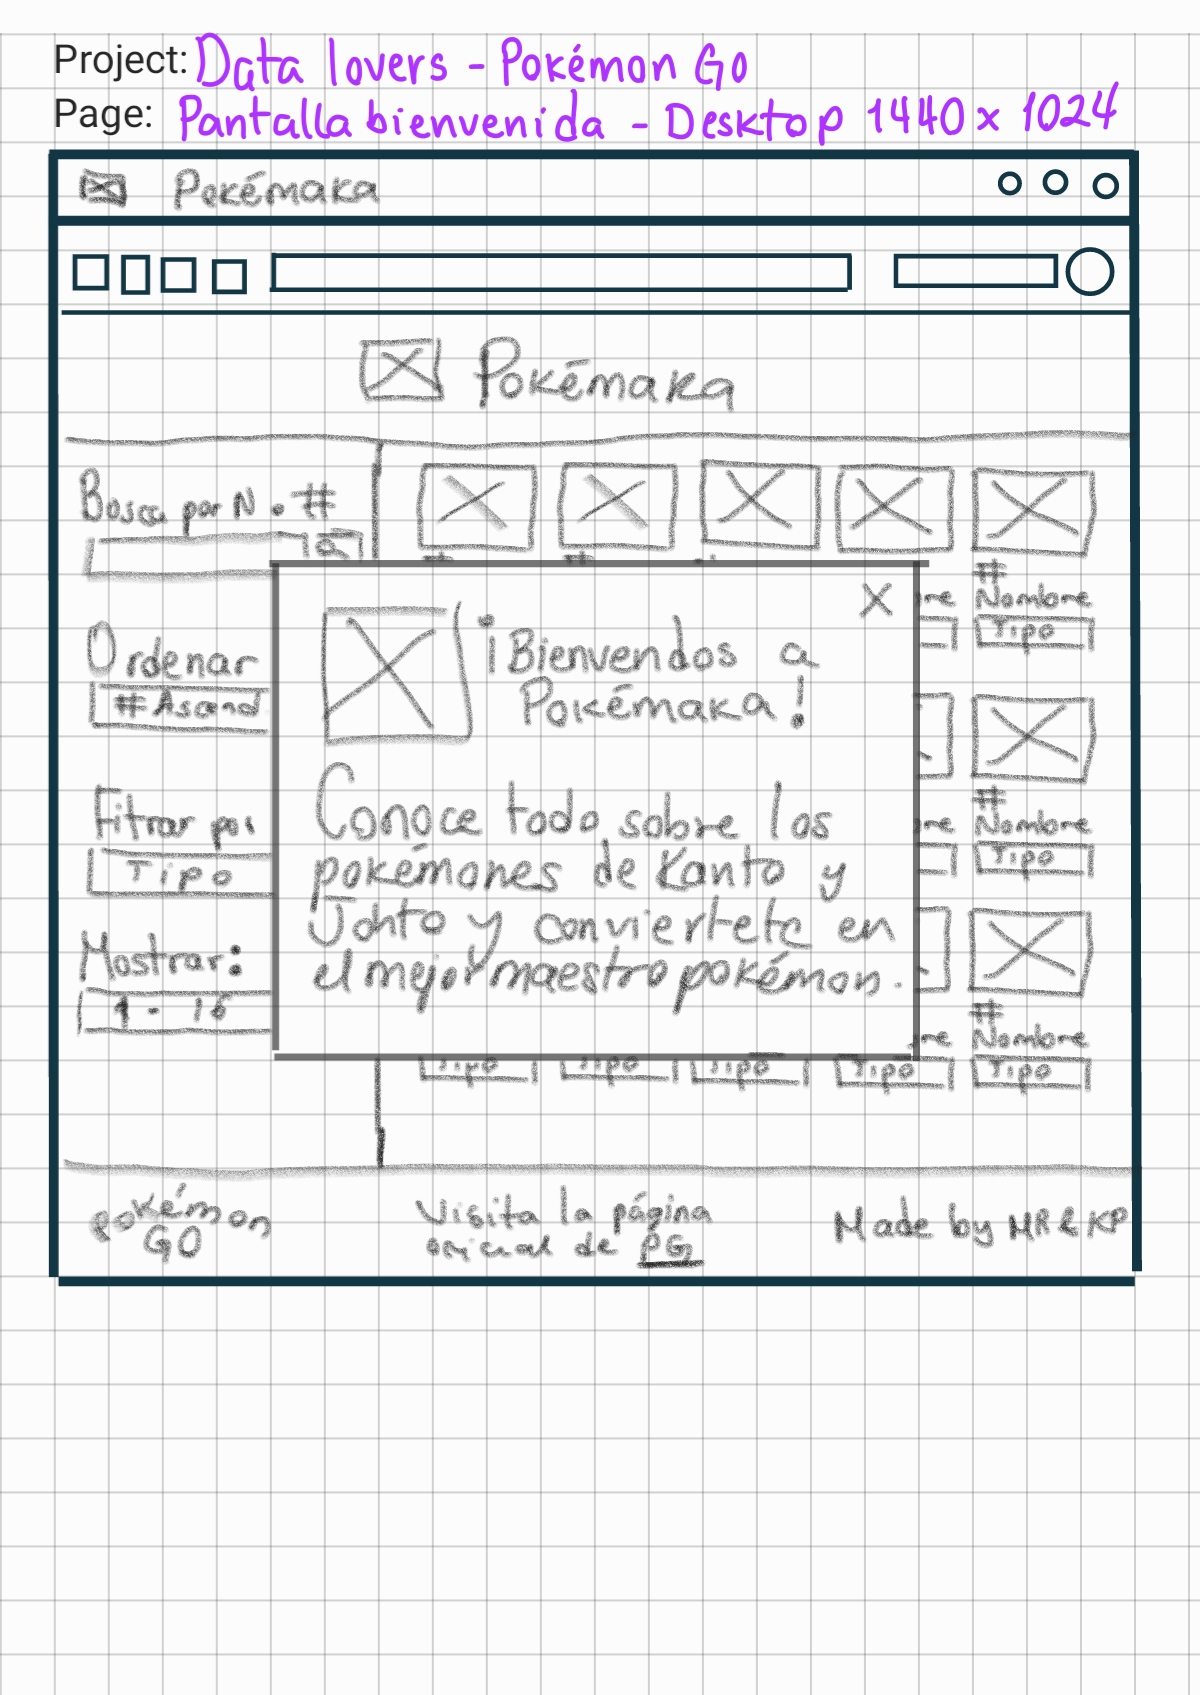 Project: Data lovers - Pokémon Go
Page: Pantalla bienvenida - Desktop 1440 x 1024
Pokémaka
Pokémaka
Busca por N. #
#
Nombre
Tipo
Ordenar
# Asand
¡Bienvendos a
Pokémaka!
X
Conoce todo sobre los
pokémones de Kanto y
Johto y conviertete en
el mejor maestro pokémon.
Fitrar por
Tipo
#
Nombre
Tipo
Mostrar:
1 - 16
#
Nombre
Tipo
Tipo
Tipo
Tipo
Tipo
pokémon
GO
Visita la página
oficial de PG
Made by MR & KP